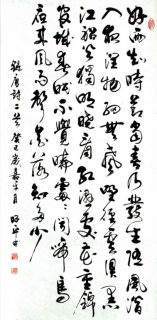 好雨知時節當春乃發生隨風潛
入夜潤物細無聲野徑雲俱黑
江船火獨明曉看紅濕處花重錦
官城春眠不覺曉處處聞啼鳥
夜來風雨聲花落知多少
錄唐詩二首